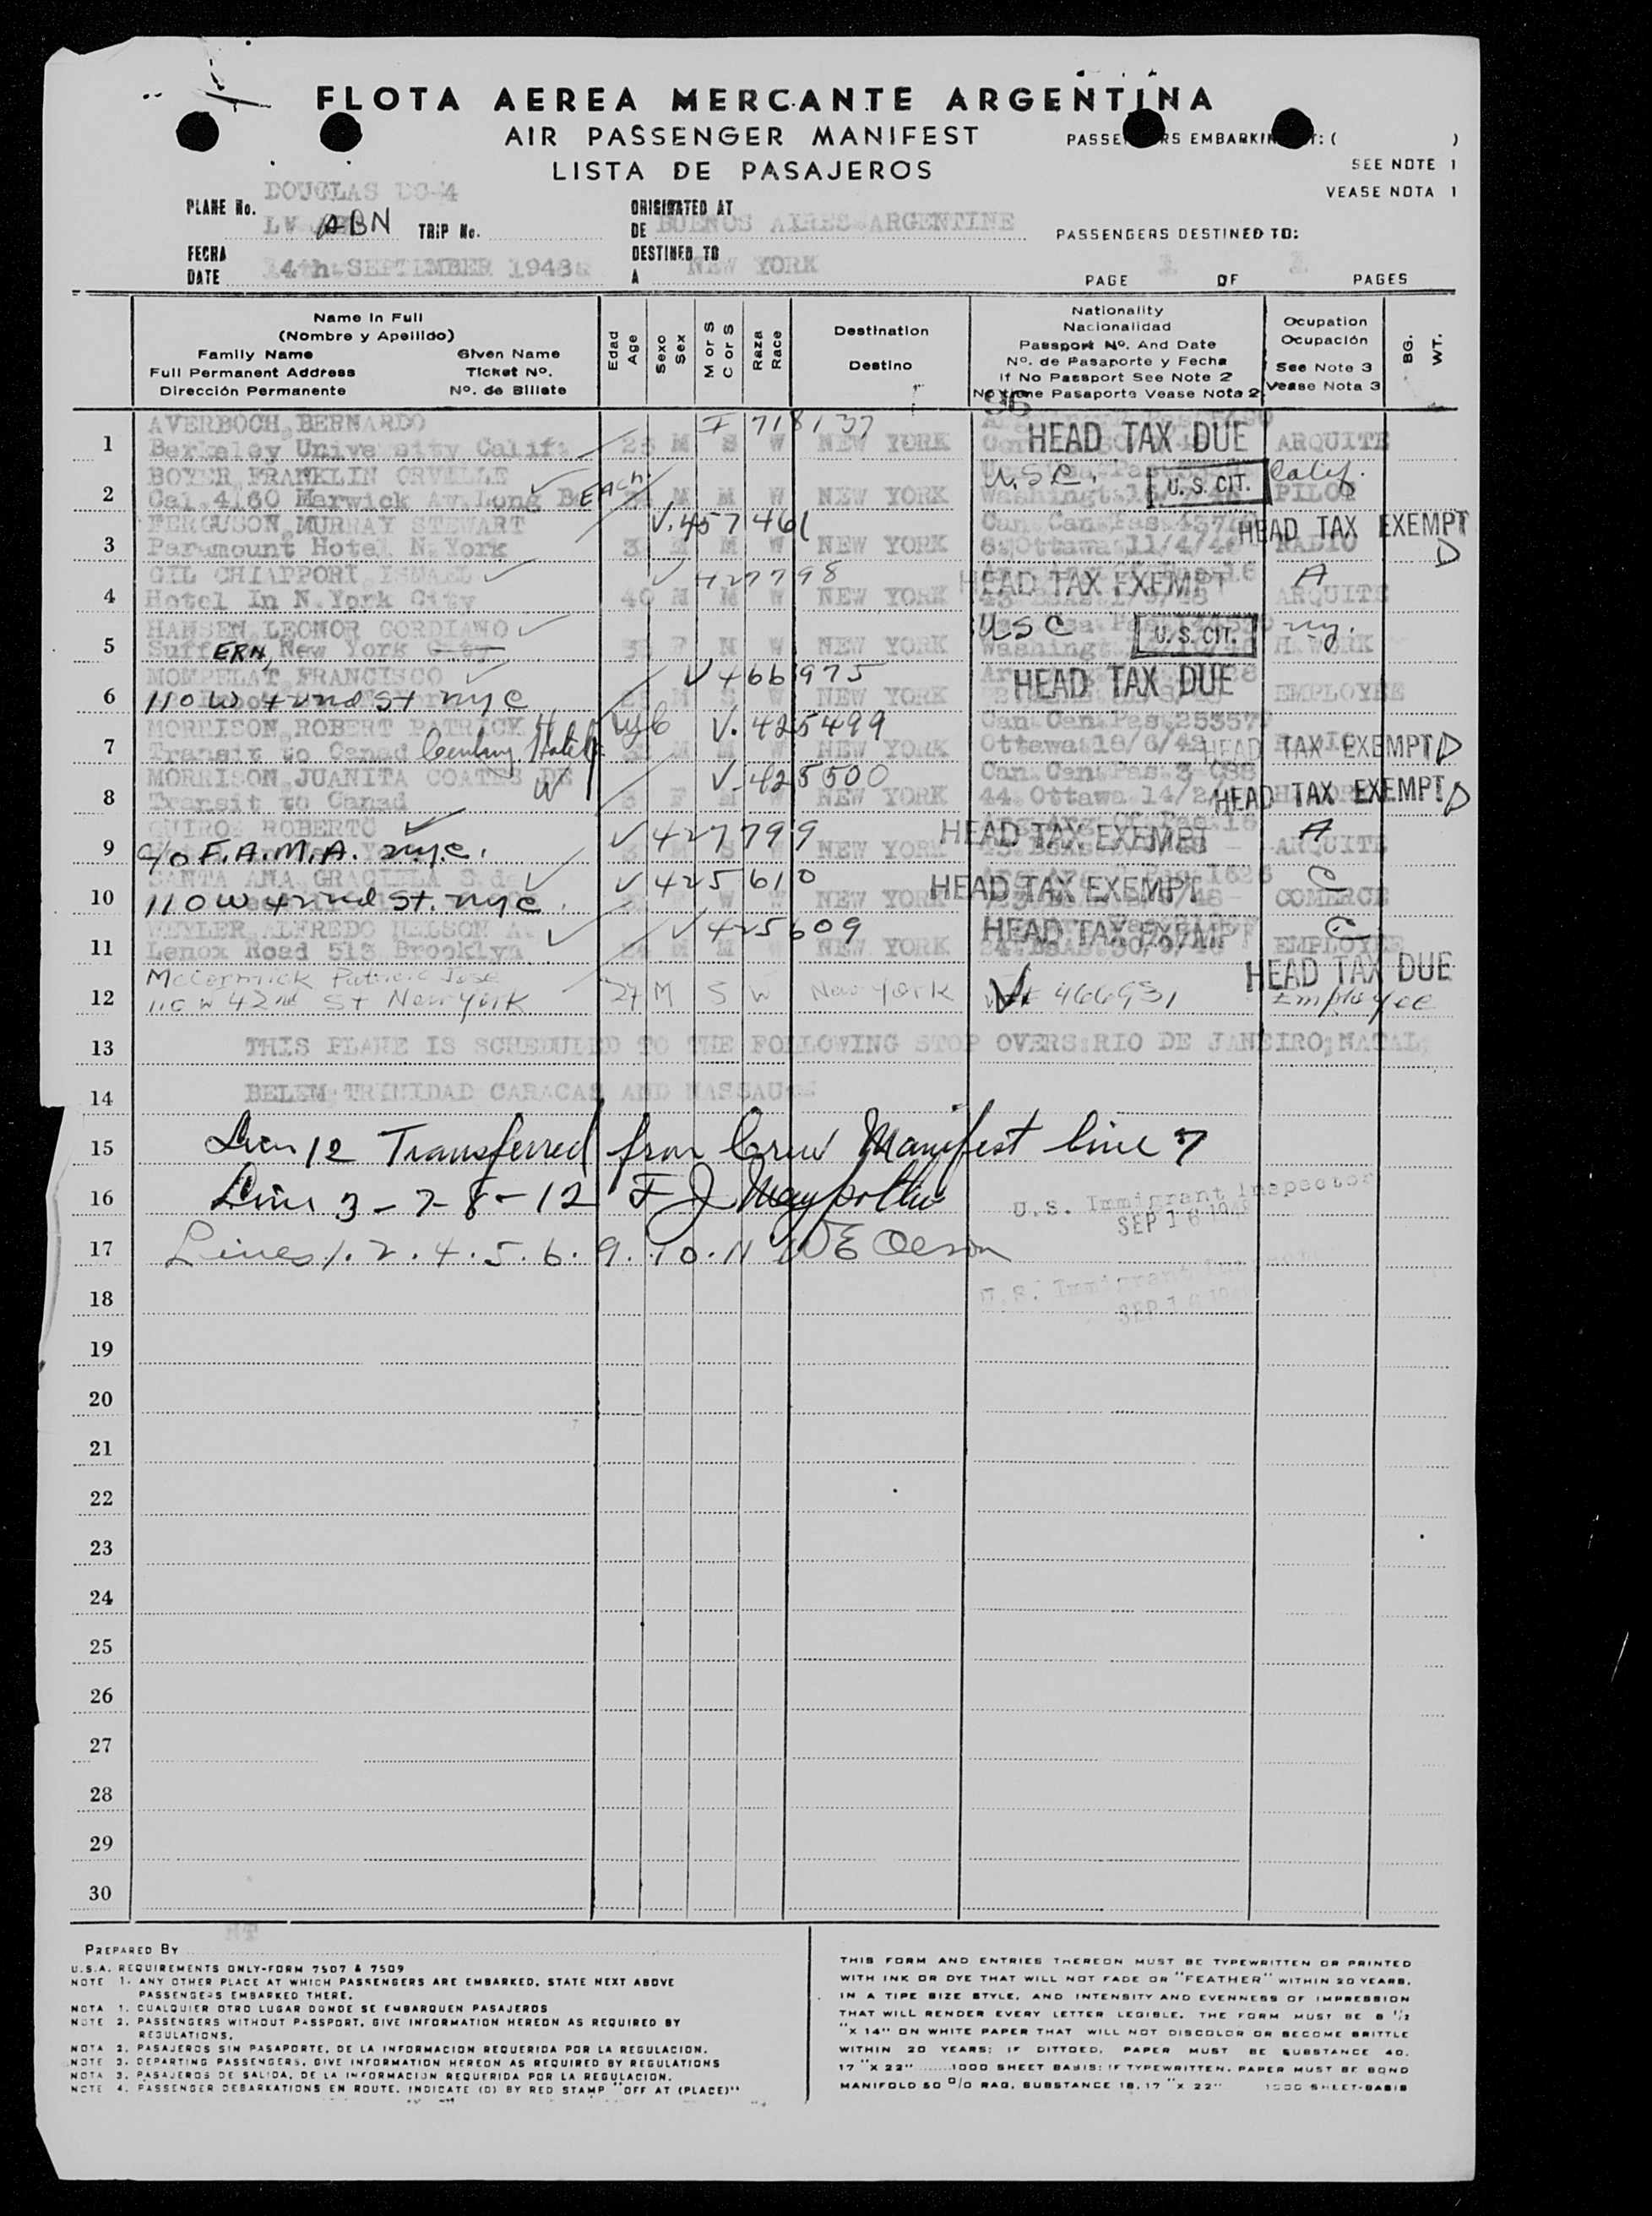 FLOTA AEREA MERCANTE ARGENTINA
AIR PASSENGER MANIFEST
LISTA DE PASAJEROS
PASSE RS EMBARKIN T: ( )
SEE NOTE 1
VEASE NOTA 1
PLANE No. DOUGLAS DC-4
LV ABN TRIP No.
ORIGINATED AT
DE BUENOS AIRES-ARGENTINE
PASSENGERS DESTINED TO:
FECHA
DATE 14th. SEPTIMBER 1948
DESTINED TO
A NEW YORK
PAGE 1 OF 1 PAGES
Name In Full
(Nombre y Apellido)
Family Name Given Name
Full Permanent Address Ticket No.
Dirección Permanente Nº. de Billete
Edad Age
Sexo Sex
M or S C or S
Raza Race
Destination
Destino
Nationality
Nacionalidad
Passport Nº. And Date
Nº. de Pasaporte y Fecha
If No Passport See Note 2
No tiene Pasaporte Vease Nota 2
Ocupation
Ocupación
See Note 3
Vease Nota 3
BG. WT.
1 AVERBOCH, BERNARDO I 718137
Berkeley Unive sity Calif. M S W NEW YORK HEAD TAX DUE ARQUITE
2 BOYER, FRANKLIN ORVILLE U.S.C. U.S. CIT. Calif.
Cal. 4160 Marwick Av. Long B EACH M M W NEW YORK Washingt. PILOT
3 FERGUSON, MURRAY STEWART V. 457461 Can. Can. Pas. HEAD TAX EXEMPT
Paramount Hotel N. York M M W NEW YORK Ottawa 11/4/4 RADIO D
4 GIL CHIAPPORI, ISMAEL V 427798 HEAD TAX EXEMPT A
Hotel In N. York City 40 M M W NEW YORK ARQUITE
5 HANSEN, LEONOR GORDIANO USC U.S. CIT. ny.
SuffERN, New York City F M W NEW YORK Washingt. H. WORK
6 MOMPELAT, FRANCISCO V 466975 HEAD TAX DUE
110 W 42nd St nyc M S W NEW YORK EMPLOYEE
7 MORRISON, ROBERT PATRICK V. 425499 Can. Can. Pas. 25357
Transit to Canad Century Hotel M M W NEW YORK Ottawa 18/6/42 HEAD TAX EXEMPT D
8 MORRISON, JUANITA COATES DE V. 425500 Can. Can. Pas. 3
Transit to Canad F M W NEW YORK 44. Ottawa 14/2 HEAD TAX EXEMPT D
9 QUIROS ROBERTO V 427799 HEAD TAX EXEMPT A
c/o F.A.M.A. nyc. M S W NEW YORK ARQUITE
10 SANTA ANA, GRACIELA S. de V 425610 HEAD TAX EXEMPT C
110 W 42nd St. nyc. NEW YORK COMERCE
11 WEYLER, ALFREDO NELSON A. V 425609 HEAD TAX EXEMPT C
Lenox Road 513 Brooklyn M M W NEW YORK EMPLOYEE
12 McCormick Patricio Jose HEAD TAX DUE
110 W 42nd St New York 27 M S W New York V 466931 Employee
13 THIS PLANE IS SCHEDULED TO THE FOLLOWING STOP OVERS: RIO DE JANEIRO; NATAL;
14 BELEM-TRINIDAD CARACAS AND NASSAU
15 Line 12 Transferred from Crew Manifest line 7
16 Lines 3 - 7 - 8 - 12 F J
U.S. Immigrant Inspector
SEP 16 1948
17 Lines 1. 2. 4. 5. 6. 9. 10. 11 W E Olson
18 U.S. Immigrant Inspector
SEP 16 1948
19
20
21
22
23
24
25
26
27
28
29
30
PREPARED BY
U.S.A. REQUIREMENTS ONLY-FORM 7507 & 7509
NOTE 1. ANY OTHER PLACE AT WHICH PASSENGERS ARE EMBARKED, STATE NEXT ABOVE
PASSENGERS EMBARKED THERE.
NOTA 1. CUALQUIER OTRO LUGAR DONDE SE EMBARQUEN PASAJEROS
NOTE 2. PASSENGERS WITHOUT PASSPORT, GIVE INFORMATION HEREON AS REQUIRED BY
REGULATIONS.
NOTA 2. PASAJEROS SIN PASAPORTE, DE LA INFORMACION REQUERIDA POR LA REGULACION.
NOTE 3. DEPARTING PASSENGERS, GIVE INFORMATION HEREON AS REQUIRED BY REGULATIONS
NOTA 3. PASAJEROS DE SALIDA, DE LA INFORMACION REQUERIDA POR LA REGULACION.
NOTE 4. PASSENGER DEBARKATIONS EN ROUTE, INDICATE (D) BY RED STAMP "OFF AT (PLACE)"
THIS FORM AND ENTRIES THEREON MUST BE TYPEWRITTEN OR PRINTED
WITH INK OR DYE THAT WILL NOT FADE OR "FEATHER" WITHIN 20 YEARS,
IN A TIPE SIZE STYLE, AND INTENSITY AND EVENNESS OF IMPRESSION
THAT WILL RENDER EVERY LETTER LEGIBLE. THE FORM MUST BE 8 1/2
"X 14" ON WHITE PAPER THAT WILL NOT DISCOLOR OR BECOME BRITTLE
WITHIN 20 YEARS; IF DITTOED, PAPER MUST BE SUBSTANCE 40,
17 "X 22" ......1000 SHEET BASIS; IF TYPEWRITTEN, PAPER MUST BE BOND
MANIFOLD 50 0/0 RAG, SUBSTANCE 18, 17 "X 22" 1000 SHEET-BASIS